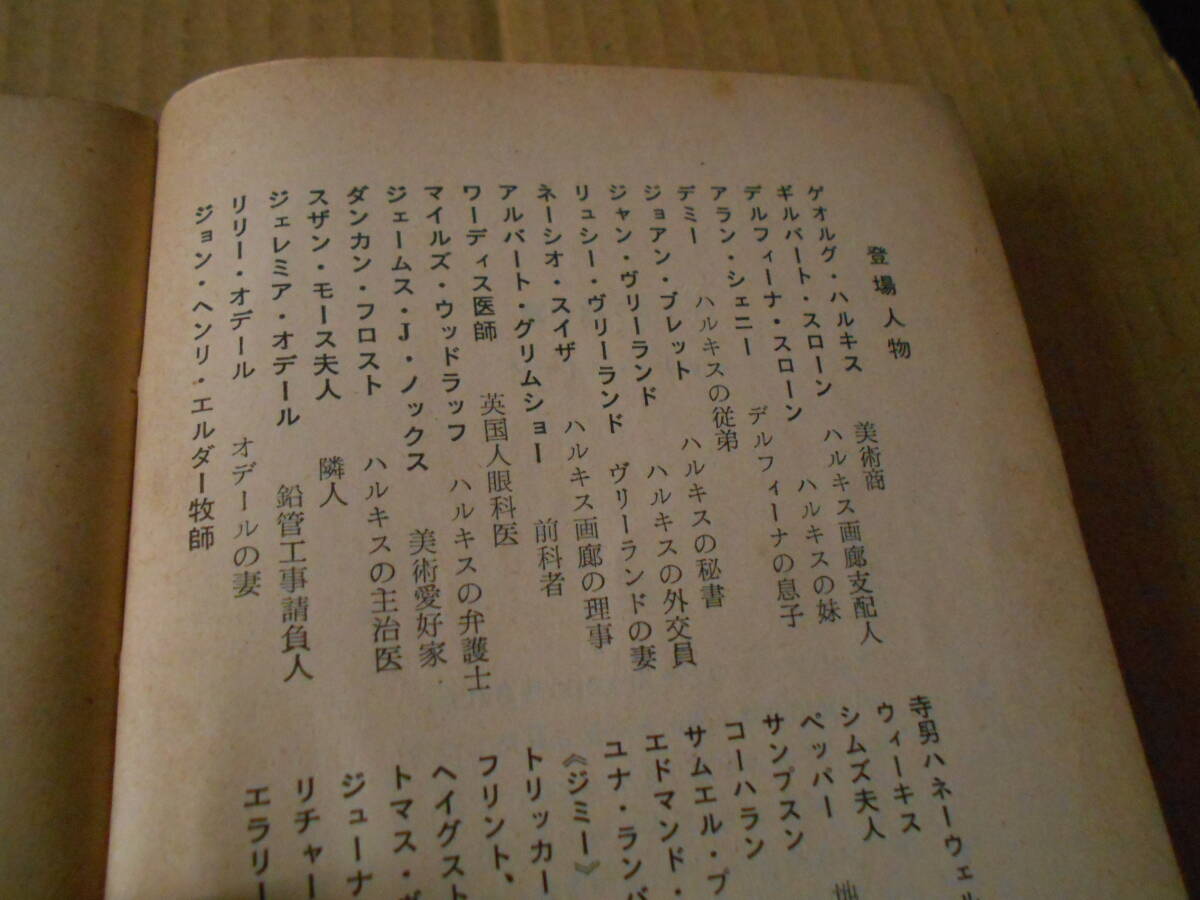 登場人物
ゲオルグ・ハルキス　美術商
ギルバート・スローン　ハルキス画廊支配人
デルフィーナ・スローン　ハルキスの妹
アラン・シェニー　デルフィーナの息子
デミー　ハルキスの従弟
ジョアン・ブレット　ハルキスの秘書
ジャン・ヴリーランド　ハルキスの外交員
リュシー・ヴリーランド　ヴリーランドの妻
ネーシオ・スイザ　ハルキス画廊の理事
アルバート・グリムショー　前科者
ワーディス医師　英国人眼科医
マイルズ・ウッドラッフ　ハルキスの弁護士
ジェームス・J・ノックス　美術愛好家
ダンカン・フロスト　ハルキスの主治医
スザン・モース夫人　隣人
ジェレミア・オデール　鉛管工事請負人
リリー・オデール　オデールの妻
ジョン・ヘンリ・エルダー牧師
寺男ハネーウェル
ウィーキス
シムズ夫人
ペッパー　地
サンプスン
コーハラン
サムエル・プ
エドマンド・
ユナ・ラン
《ジミー》
トリッカー
フリント、
ヘイグスト
トマス・
ジューナ
リチャー
エラリー